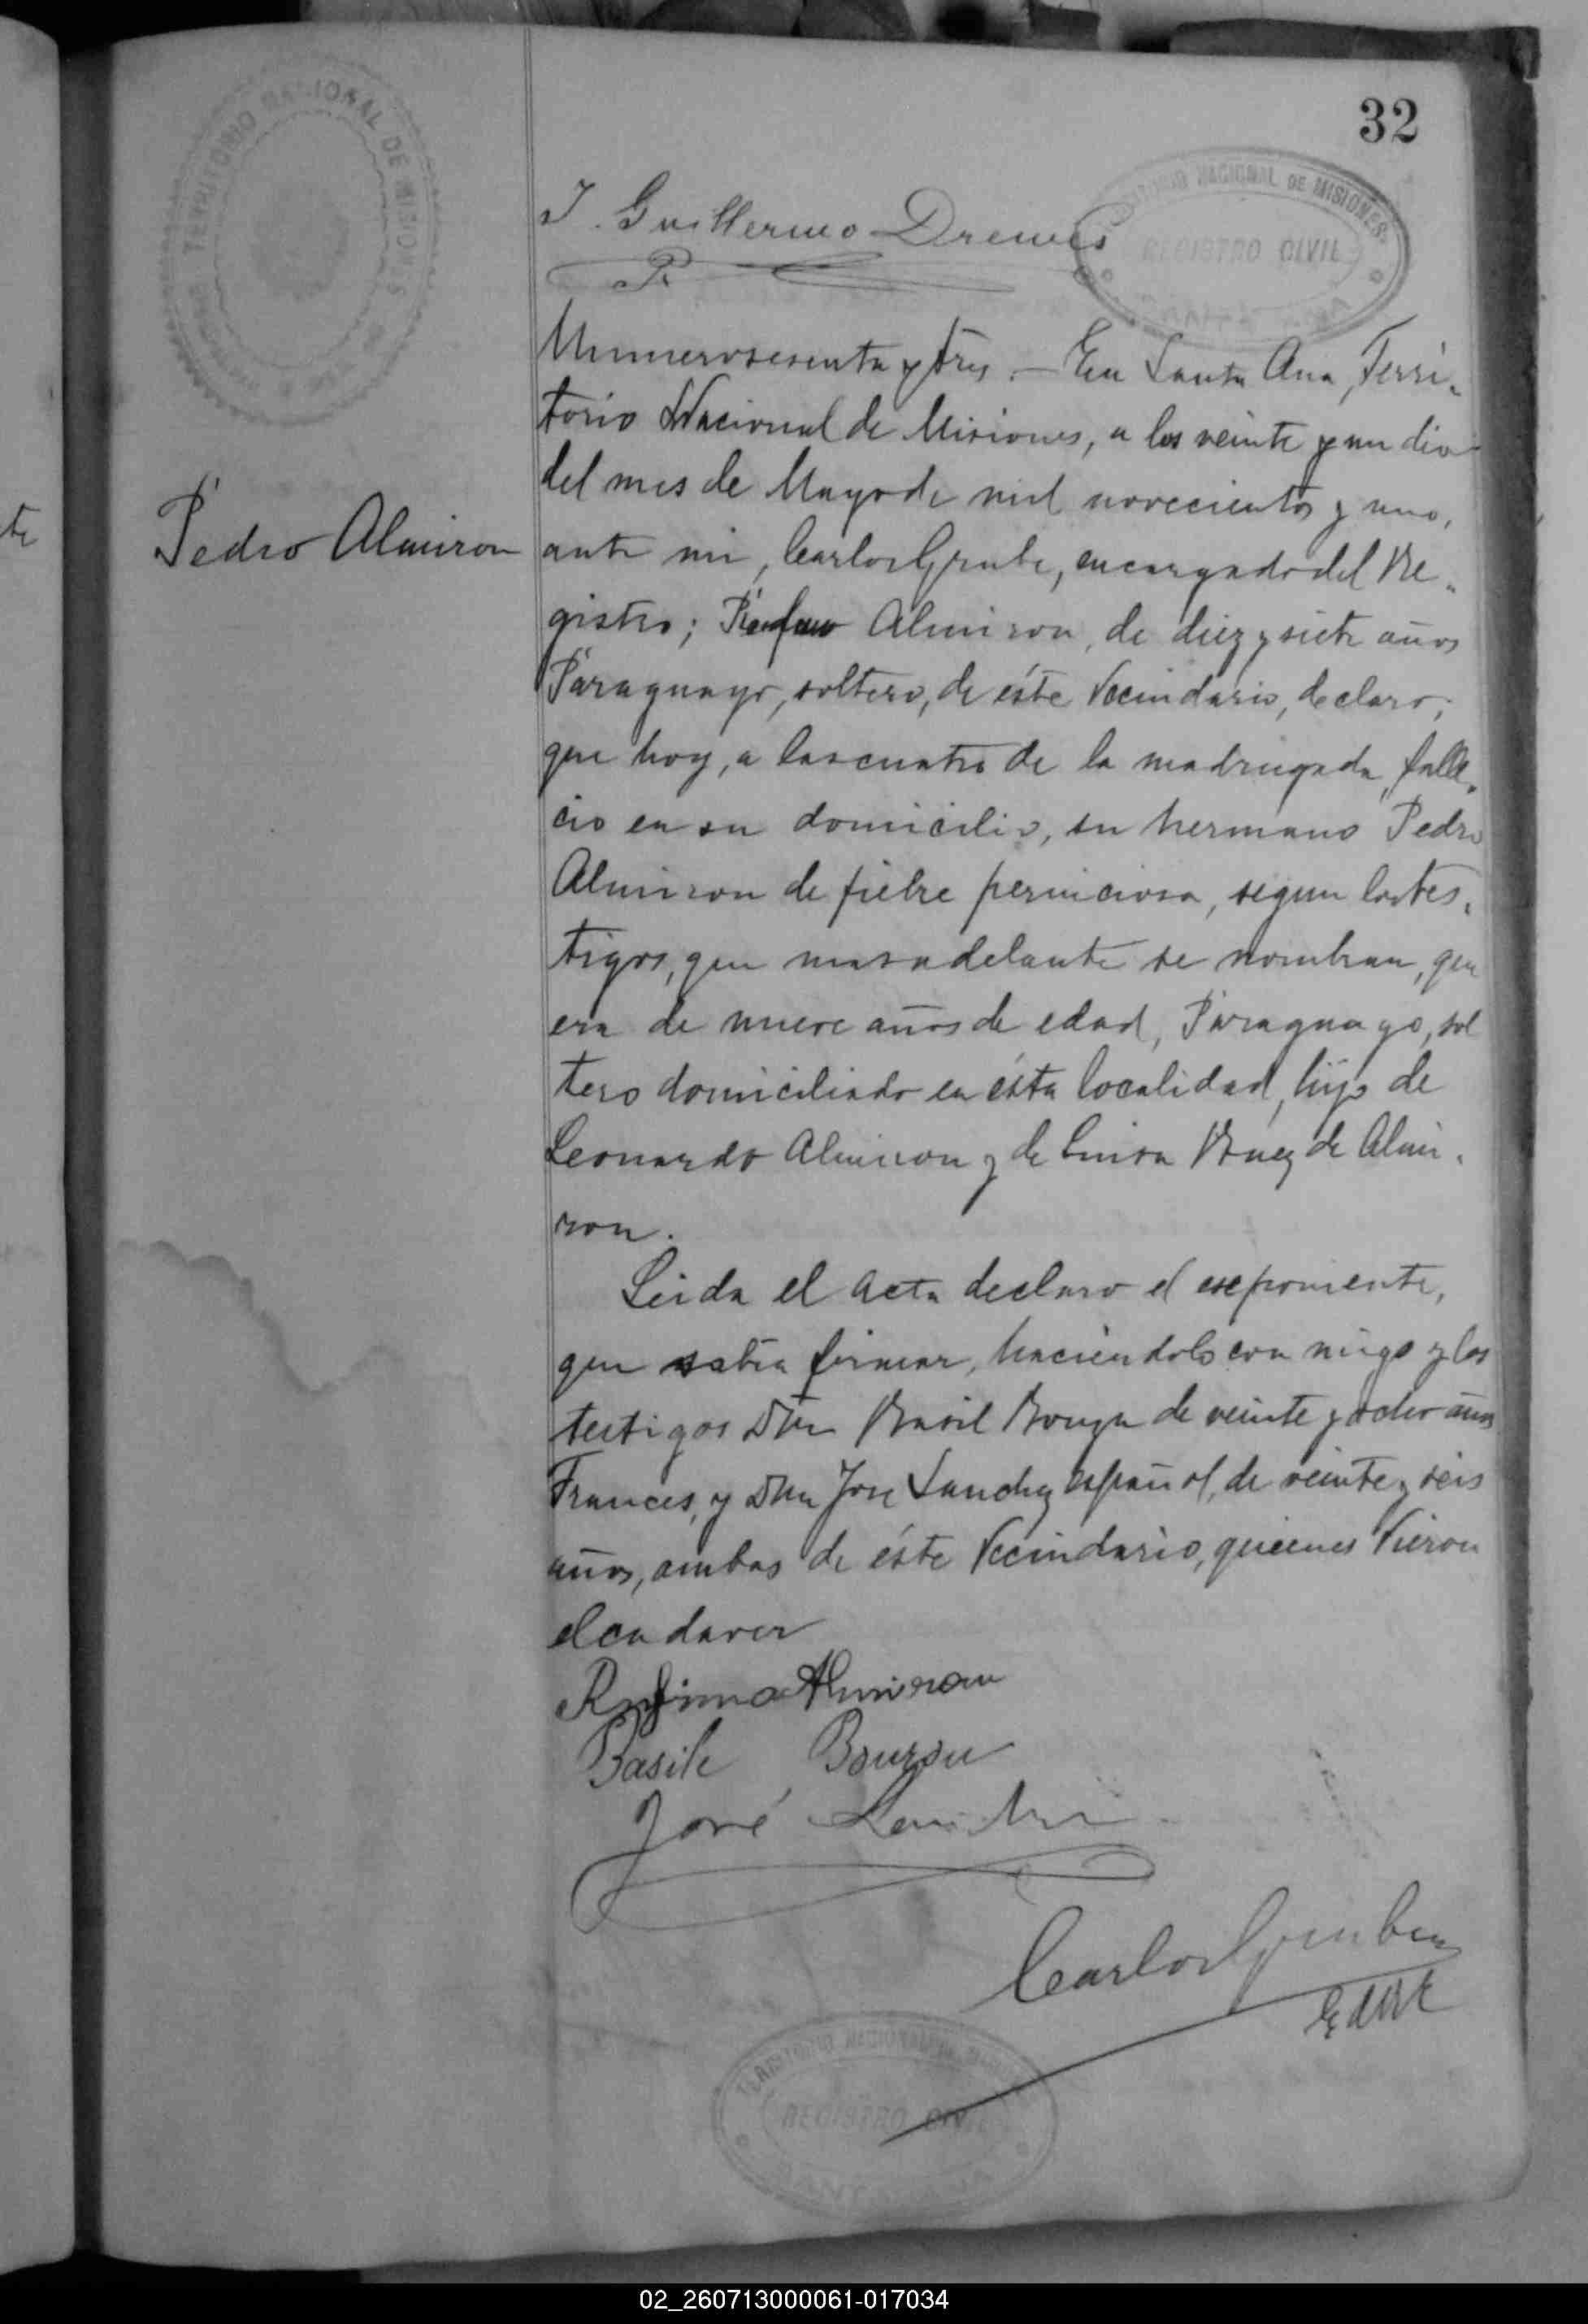 32
TERRITORIO NACIONAL DE MISIONES
TERRITORIO NACIONAL DE MISIONES
REGISTRO CIVIL
J. Guillermo Drewes
Pedro Almiron
Numero sesenta y tres. — En Santa Ana, Terri-
torio Nacional de Misiones, a los veinte y un dia
del mes de Mayo de mil novecientos y uno,
ante mi, Carlos Grube, encargado del Re-
gistro; Almiron, de diez y siete años
Paraguayo, soltero, de éste Vecindario, declaro;
que hoy, a las cuatro de la madrugada, falle-
cio en su domicilio, su hermano Pedro
Almiron de fiebre perniciosa, segun los tes-
tigos, que mas adelante se nombran, que
era de nueve años de edad, Paraguayo, sol
tero domiciliado en ésta localidad, hijo de
Leonardo Almiron y de Luisa Baez de Almi-
ron.
Leida el acta declaro el exponiente,
que sabia firmar, haciendolo con migo y los
testigos Don Basil de veinte y ocho años
Frances, y Don Jose Sanchez español, de veinte y seis
años, ambos de éste Vecindario, quienes Vieron
el cadaver
Rufino Almiron
Basile
José
Carlos
TERRITORIO NACIONAL DE MISIONES
REGISTRO CIVIL
SANTA ANA
02_260713000061-017034